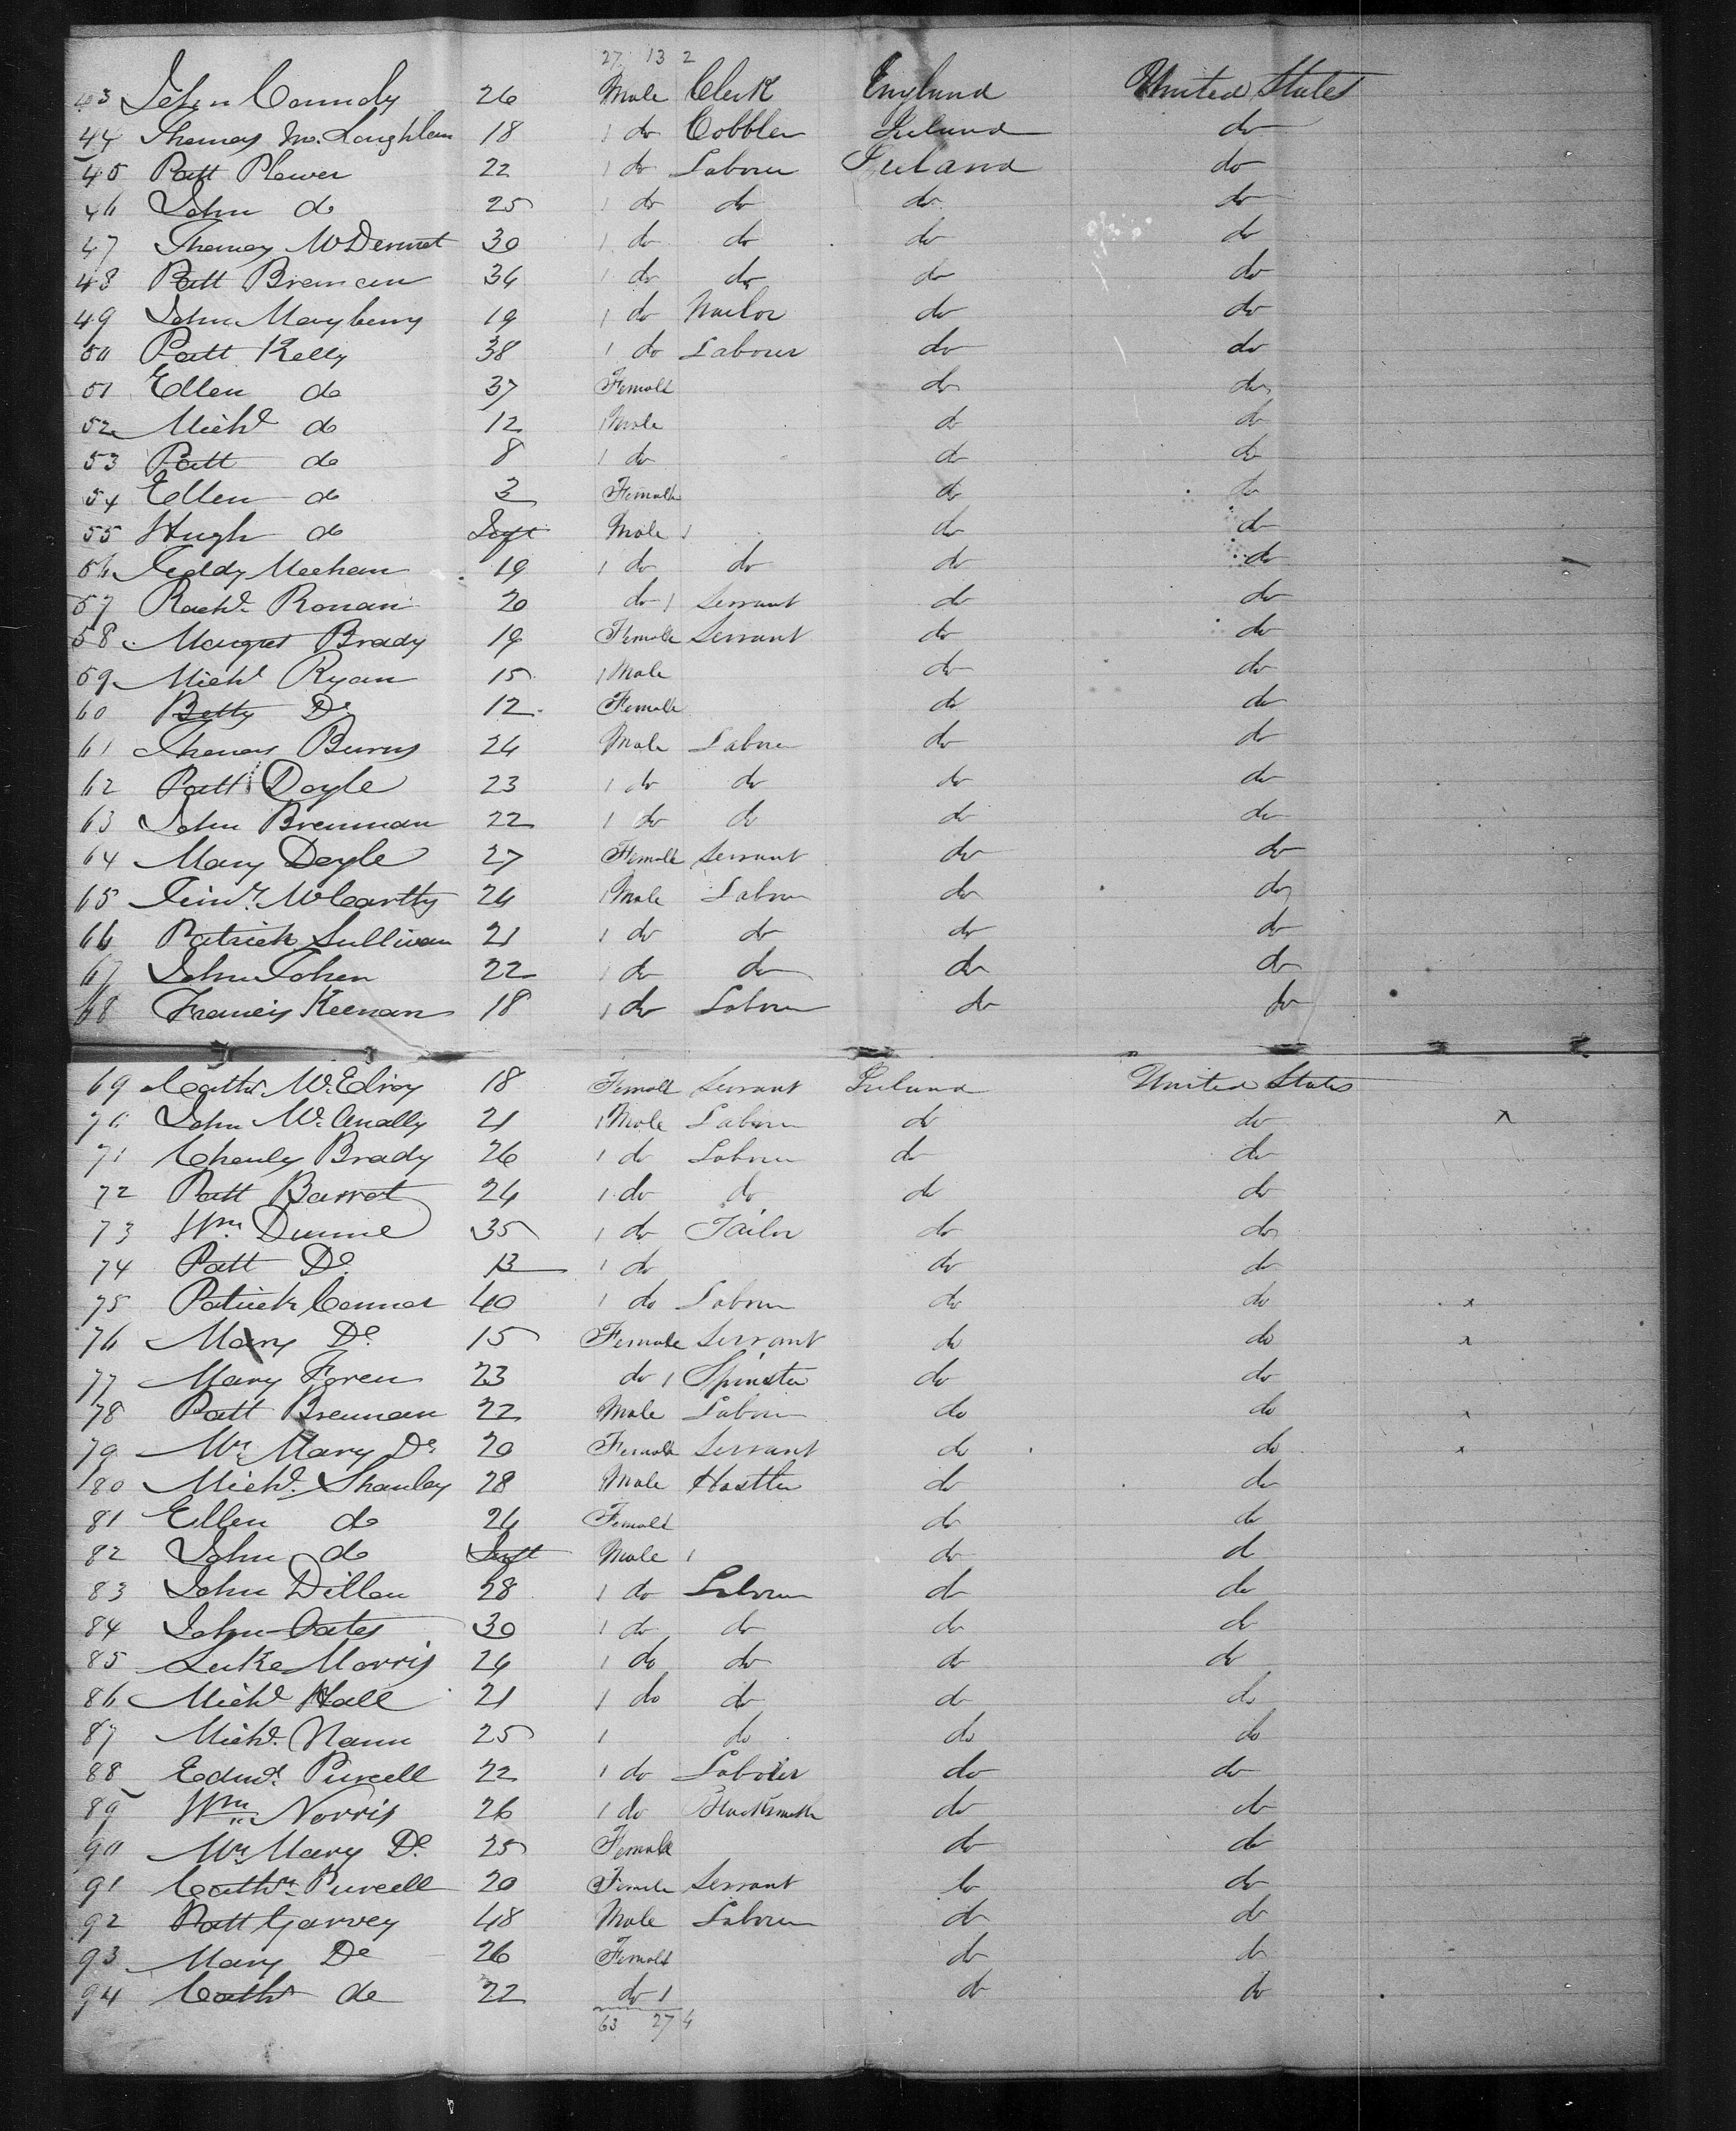 27 13 2
43 John Connoly 26 Male Clerk England United States
44 Thomas Mc. Laughlan 18 1 do Cobbler Ireland do
45 Patt Plower 22 1 do Labourer Ireland do
46 John do 25 1 do do do do
47 Thomas McDermot 30 1 do do do do
48 Patt Brennan 36 1 do do do do
49 John Mayberry 19 1 do Nailor do do
50 Patt Kelly 38 1 do Labourer do do
51 Ellen do 37 Female do do
52 Michl do 12 1 Male do do
53 Patt do 8 1 do do do
54 Ellen do 3 Female do do
55 Hugh do Inft Male 1 do do
56 Teddy Meehan 19 1 do do do do
57 Rachl. Ronan 20 do 1 Servant do do
58 Margret Brady 19 Female Servant do do
59 Michl Ryan 15 1 Male do do
60 Betty Do 12 Female do do
61 Thomas Burns 24 Male Labourer do do
62 Patt Doyle 23 1 do do do do
63 John Brennan 22 1 do do do do
64 Mary Doyle 27 Female Servant do do
65 Timy. McCartthy 24 1 Male Labourer do do
66 Patrick Sullivan 21 1 do do do do
67 John Tohen 22 1 do do do do
68 Francis Keenan 18 1 do Labourer do do
69 Cathn McElroy 18 Female Servant Ireland United States
70 John Mc.Anally 21 1 Male Labourer do do x
71 Charley Brady 26 1 do Labourer do do
72 Patt Barrot 24 1 do do do do
73 Wm. Dunne 35 1 do Tailor do do
74 Patt Do. 13 1 do do do
75 Patrick Connor 40 1 do Labourer do do x
76 Mary Do 15 Female Servant do do x
77 Mary Foren 23 do 1 Spinster do do
78 Patt Brennan 22 Male Labourer do do x
79 Mrs Mary Do 20 Female Servant do do x
80 Michl. Shanley 28 Male Hostler do do
81 Ellen do 24 Female do do
82 John do Inft Male 1 do do
83 John Dillon 28 1 do Labourer do do
84 John Oates 30 1 do do do do
85 Luke Morris 24 1 do do do do
86 Michl Hall 21 1 do do do do
87 Michl. Nann 25 1 do do do
88 Edwd. Purcell 22 1 do Labourer do do
89 Wm Norris 26 1 do Blacksmith do do
90 Mrs Mary Do 25 Female do do
91 Cathn. Purcell 20 Female Servant do do
92 Patt Garvey 48 Male Labourer do do
93 Mary Do 26 Female do do
94 Cathn do 22 do 1 do do
63 27 4